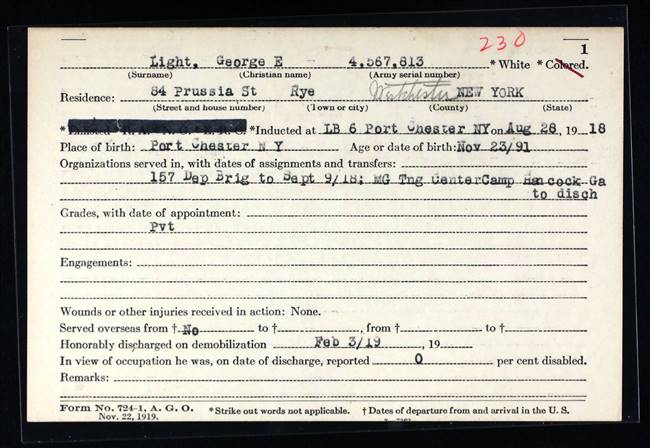 230
1
Light, George E 4,567,813 * White * Colored.
(Surname) (Christian name) (Army serial number)
Residence: 84 Prussia St Rye Westchester NEW YORK
(Street and house number) (Town or city) (County) (State)
* *Inducted at LB 6 Port Chester NY on Aug 28, 19 18
Place of birth: Port Chester N Y Age or date of birth: Nov 23/91
Organizations served in, with dates of assignments and transfers:
157 Dep Brig to Sept 9/18; MG Tng CenterCamp Hancock Ga
to disch
Grades, with date of appointment:
Pvt
Engagements:
Wounds or other injuries received in action: None.
Served overseas from † No to †, from † to †
Honorably discharged on demobilization Feb 3/19, 19
In view of occupation he was, on date of discharge, reported 0 per cent disabled.
Remarks:
Form No. 724-1, A. G. O. *Strike out words not applicable. † Dates of departure from and arrival in the U. S.
Nov. 22, 1919.